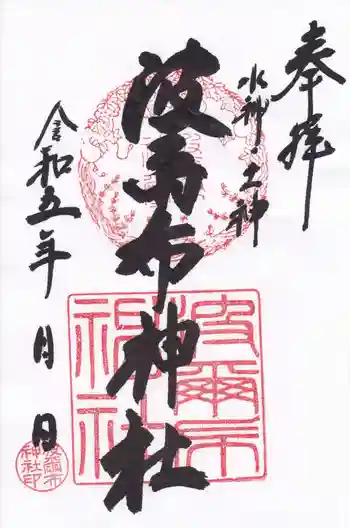 奉拝
水神・土神
波弥布神社
令和五年 月 日
波爾布
神社
波爾布
神社印